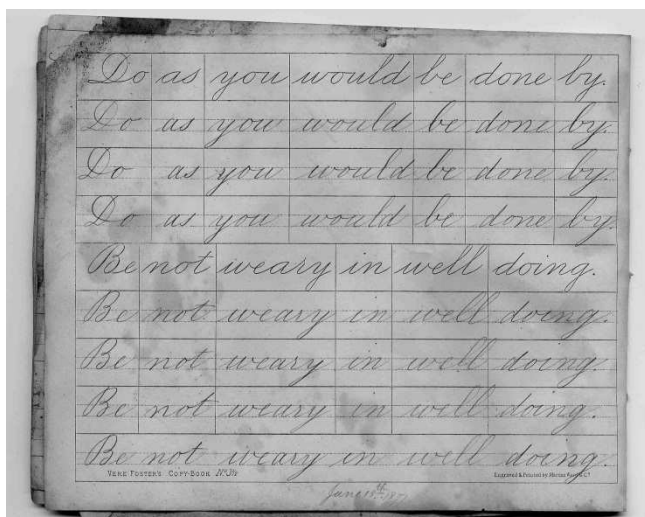 Do as you would be done by.
Do as you would be done by.
Do as you would be done by.
Do as you would be done by.
Be not weary in well doing.
Be not weary in well doing.
Be not weary in well doing.
Be not weary in well doing.
Be not weary in well doing.
VERE FOSTER'S COPY-BOOK
Engraved & Printed by Marcus Ward & Co